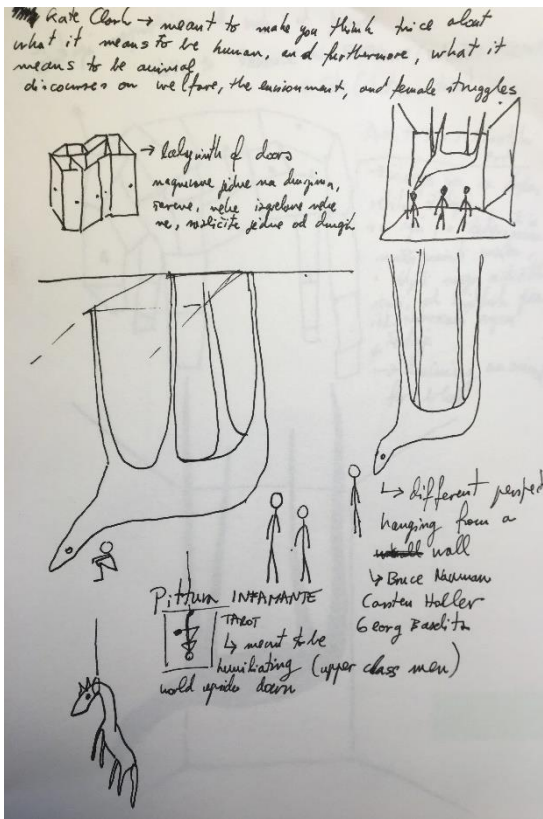 Kate Clark → meant to make you think twice about
what it means to be human, and furthermore, what it
means to be animal
discourses on welfare, the environment, and female struggles
→ labyrinth of doors
jedne na drugima,
neke neke
ne, različite jedne od drugih
↳ different perspect
hanging from a
wall
↳ Bruce Nauman
Carsten Holler
Georg Baselitz
Pittura INFAMANTE
TAROT
↳ meant to be
humiliating (upper class men)
world upside down